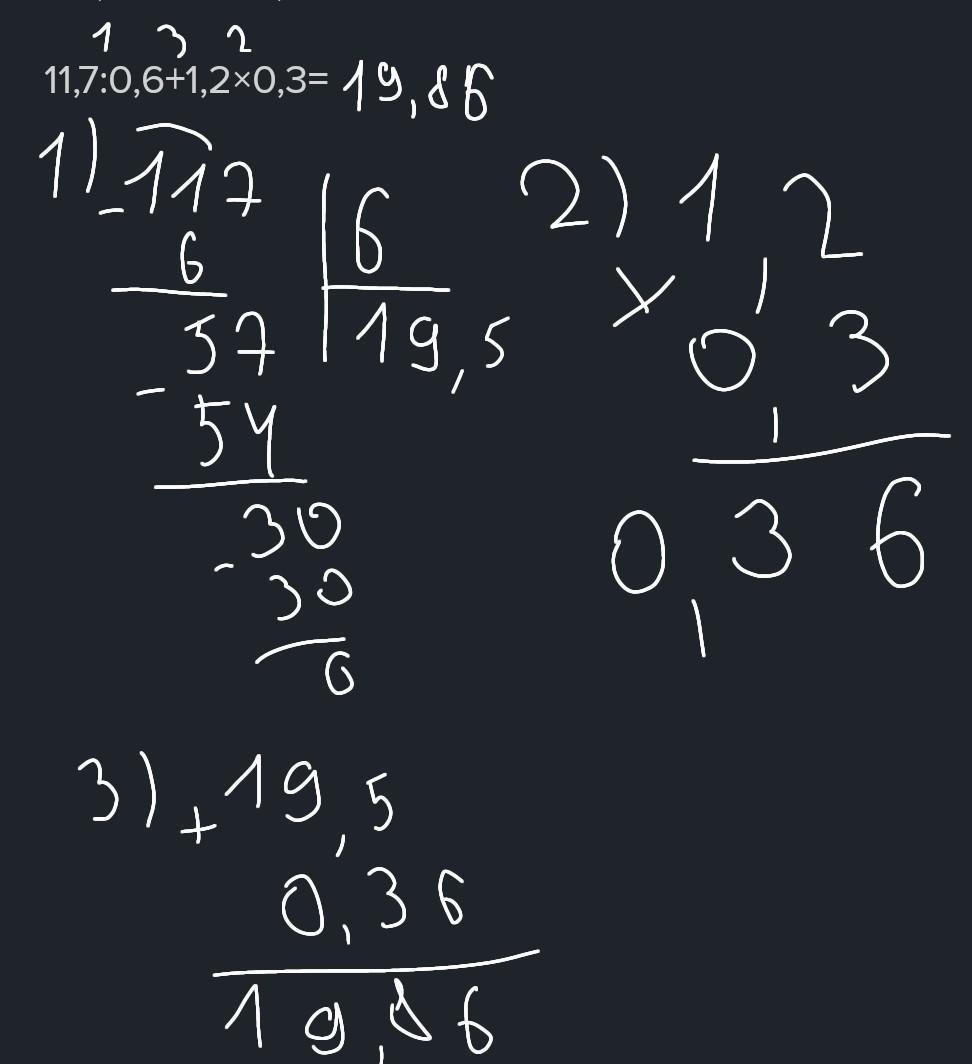 1 3 2
11,7:0,6+1,2×0,3= 19,86
1) -117 | 6
6 | 19,5
57
- 54
30
- 30
0
2) 1,2
× 0,3
0,36
3) + 19,5
0,36
19,86